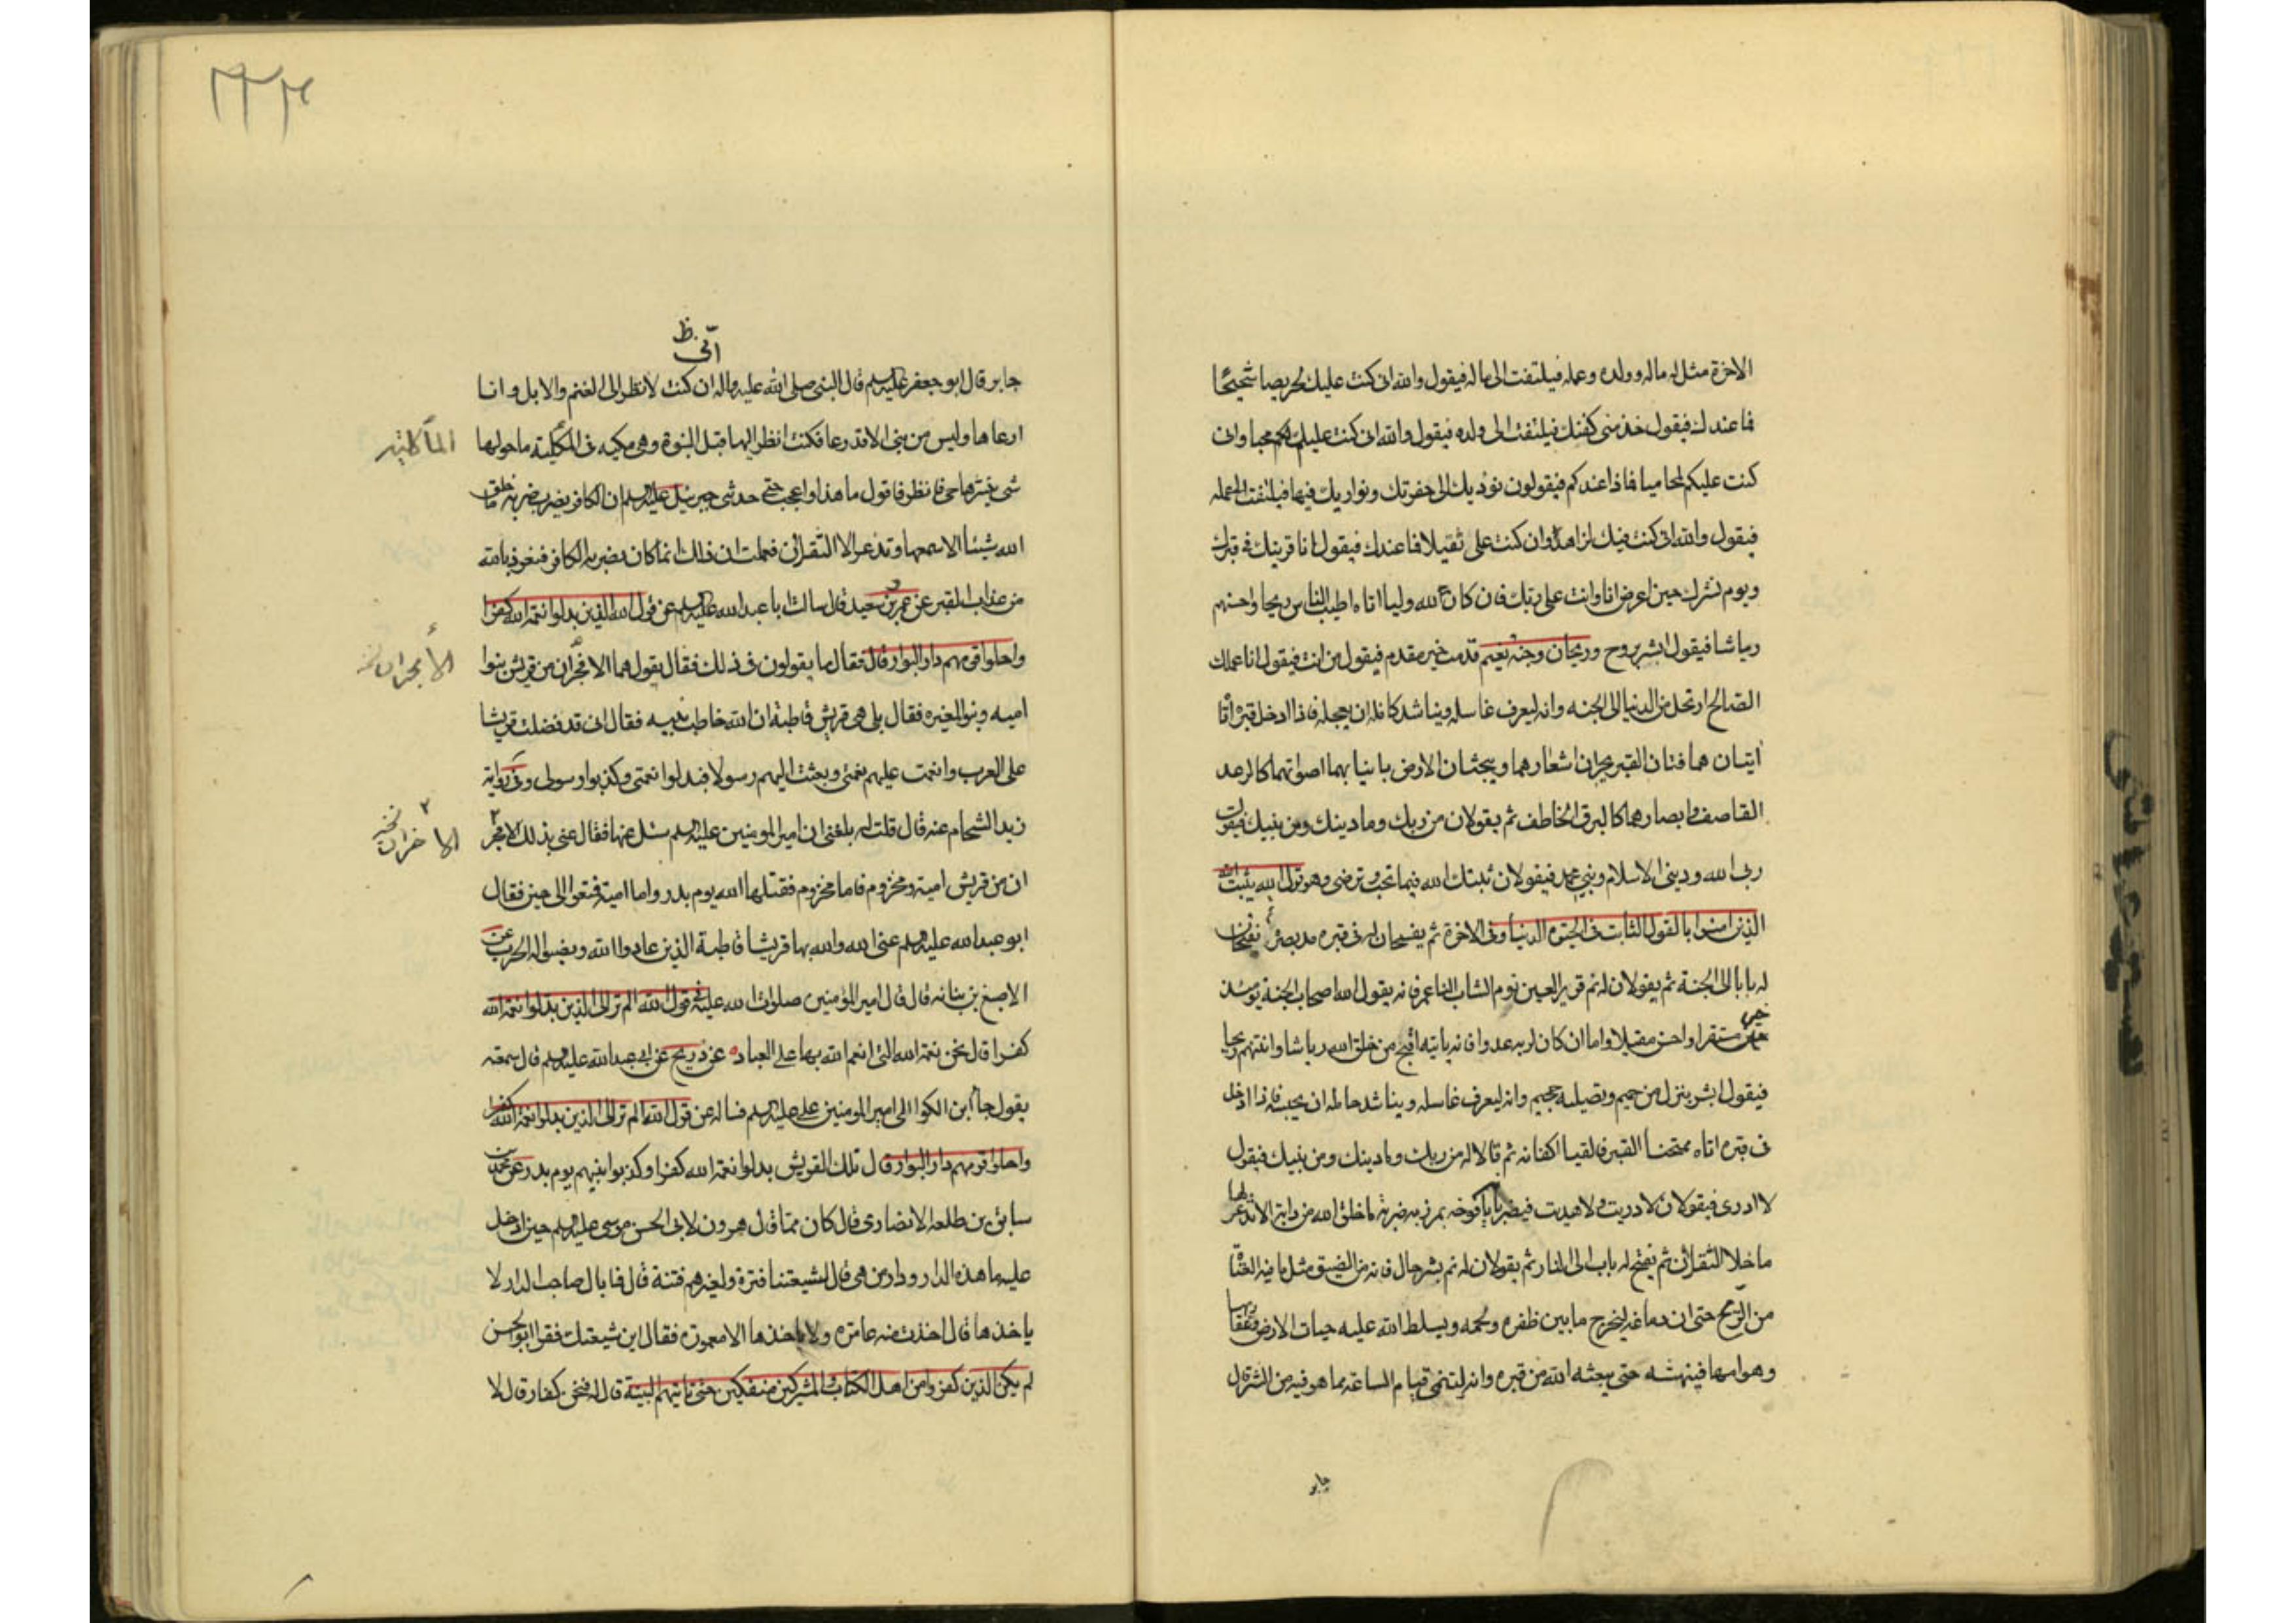 الاخرة مثل له ماله وولده وعمله فيلتفت الى ماله فيقول والله انى كنت عليك لحريصا شحيحا
فما عندك فيقول خذ منى كفنك فيلتفت الى ولده فيقول والله انى كنت عليكم لكم محبا وانى
كنت عليكم لمحاميا فماذا عندكم فيقولون نوديك الى حفرتك ونواريك فيها فيلتفت الى عمله
فيقول والله انى كنت فيك لزاهدا وان كنت على ثقيلا فما عندك فيقول انا قرينك فى قبرك
ويوم نشرك حين اعرض انا وانت على ربك فان كان لله وليا اتاه اطيب الناس ريحا واحسنهم
رياشا فيقول ابشر بروح وريحان وجنة نعيم قدمت خير مقدم فيقول من انت فيقول انا عملك
الصالح ارتحل من الدنيا الى الجنه وانه ليعرف غاسله ويناشد حامله ان يعجله فاذا ادخل قبره اتاه
اتيان هما فتان القبر يجران اشعارهما ويبحثان الارض بانيابهما اصواتهما كالرعد
القاصف وابصارهما كالبرق الخاطف ثم يقولان من ربك وما دينك ومن نبيك فيقول
ربى الله ودينى الاسلام ونبيى محمد فيقولان ثبتك الله فيما تحب وترضى وهو قول الله يثبت الله
الذين امنوا بالقول الثابت فى الحيوة الدنيا وفى الاخرة ثم يفسحان له فى قبره مد بصره ثم يفتحان
له بابا الى الجنة ثم يقولان له نم قرير العين نوم الشاب الناعم فانه يقول الله اصحاب الجنة يومئذ
خير مستقرا واحسن مقيلا واما ان كان لربه عدوا فانه ياتيه اقبح من خلق الله رياشا وانتنهم ريحا
فيقول ابشر بنزل من حميم وتصلية جحيم وانه ليعرف غاسله ويناشد حامله ان يحبسه فاذا ادخل
فى قبره اتاه ممتحنا القبر فالقيا اكفانه ثم قالا له من ربك وما دينك ومن نبيك فيقول
لا ادرى فيقولان لا دريت ولا هديت فيضربان يافوخه بمرزبه ضربة ما خلق الله من دابة الا تذعر لها
ما خلا الثقلان ثم يفتح له باب الى النار ثم يقولان له نم بشر حال فانه من الضيق مثل ما فيه القنا
من الزج حتى ان دماغه ليخرج مابين ظفره ولحمه ويسلط الله عليه حيات الارض وعقاربها
وهوامها فينهشه حتى يبعثه الله من قبره وانه ليتمنى قيام الساعة مما هو فيه من الشر قال
جابر
انى ظ
جابر قال ابو جعفر عليه السلم قال النبى صلى الله عليه واله ان كنت لانظر الى الغنم والابل وانا
ارعاها وليس من نبى الا وقد رعا فكنت انظر اليها قبل النبوة وهى مكيه فى المكينة ما حولها
شى يهيجها حى فانظر فاقول ما هذا واعجب حتى حدثنى جبرئيل عليه السلم ان الكافر يضرب ضربة ما خلق
الله شيئا الا سمعها وتذعر الا الثقلان فعلمت ان ذلك انما كان بضربه الكافر فنعوذ بالله
من عذاب القبر عن عمرو بن سعيد قال سالت ابا عبدالله عليه السلم عن قول الله الذين بدلوا نعمة الله كفرا
واحلوا قومهم دار البوار قال فقال ما يقولون فى ذلك فقال يقول هما الافجران من قريش بنوا
اميه وبنو المغيره فقال بلى هى قريش قاطبة ان الله خاطب نبيه فقال انى قد فضلت قريشا
على العرب وانعمت عليهم نعمتى وبعثت اليهم رسولا فبدلوا نعمتى وكذبوا رسولى وفى رواية
زيد الشحام عنه قال قلت له بلغنى ان امير المومنين عليه السلم سئل عنها فقال عنى بذلك الافجر
ان من قريش امية ومخزوم فاما مخزوم فقتلها الله يوم بدر واما امية فمتعوا الى حين فقال
ابو عبدالله عليه السلم عنى الله والله بها قريشا قاطبة الذين عادوا الله ونصبوا له الحرب عن
الاصبغ بن نباته قال قال امير المؤمنين صلوات الله عليه فى قول الله الم تر الى الذين بدلوا نعمة الله
كفرا قال نحن نعمة الله التى انعم الله بها على العباد عن ذريح عن ابى عبدالله عليه السلم قال سمعته
يقول جاء ابن الكوا الى امير المومنين على عليه السلم فساله عن قول الله الم تر الى الذين بدلوا نعمة الله كفرا
واحلوا قومهم دار البوار قال تلك القريش بدلوا نعمة الله كفرا وكذبوا نبيهم يوم بدر عن محمد بن
سابق بن طلحه الانصارى قال كان مما قال هرون لابى الحسن موسى عليه السلم حين ادخل
عليه ما هذه الدار ودار من هى قال لشيعتنا فترة ولغيرهم فتنة قال فما بال صاحب الدار لا
ياخذها قال اخذت منه عامرة ولا ياخذها الا معمورة فقال اين شيعتك فقرا ابو الحسن
لم يكن الذين كفروا من اهل الكتاب والمشركين منفكين حتى تاتيهم البينة قال له فنحن كفار قال لا